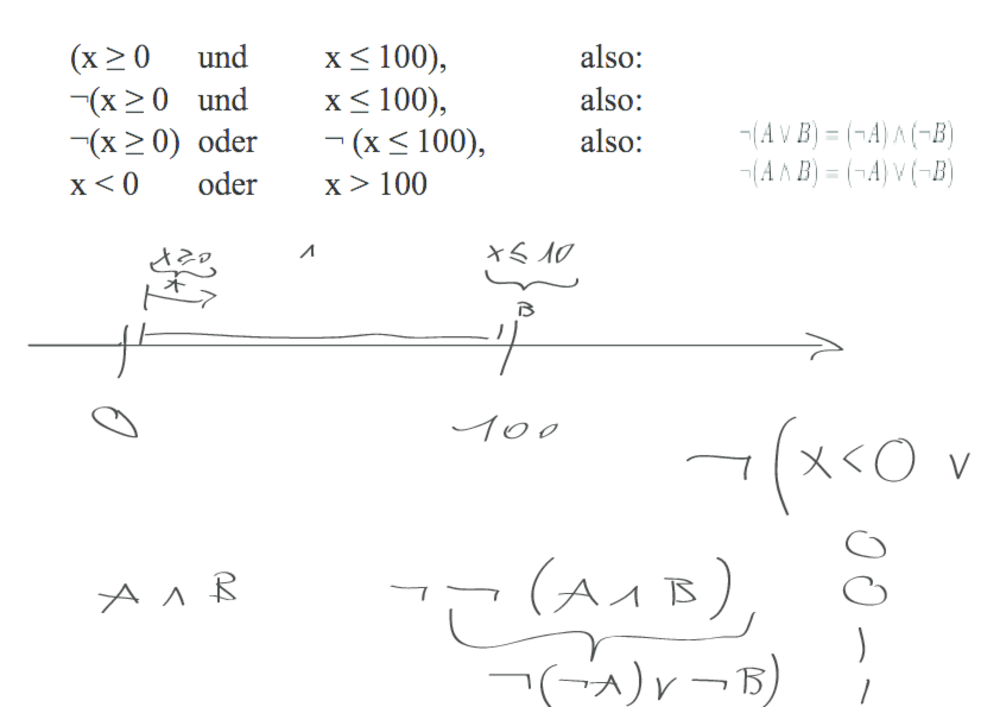 (x ≥ 0 und x ≤ 100), also:
¬(x ≥ 0 und x ≤ 100), also:
¬(x ≥ 0) oder ¬ (x ≤ 100), also: ¬(A ∨ B) = (¬A) ∧ (¬B)
x < 0 oder x > 100 ¬(A ∧ B) = (¬A) ∨ (¬B)
x ≥ 0 ∧ x ≤ 10
B
0 100
¬(x < 0 ∨
0
A ∧ B ¬¬(A ∧ B) 0
1
¬(¬A) ∨ ¬B) 1